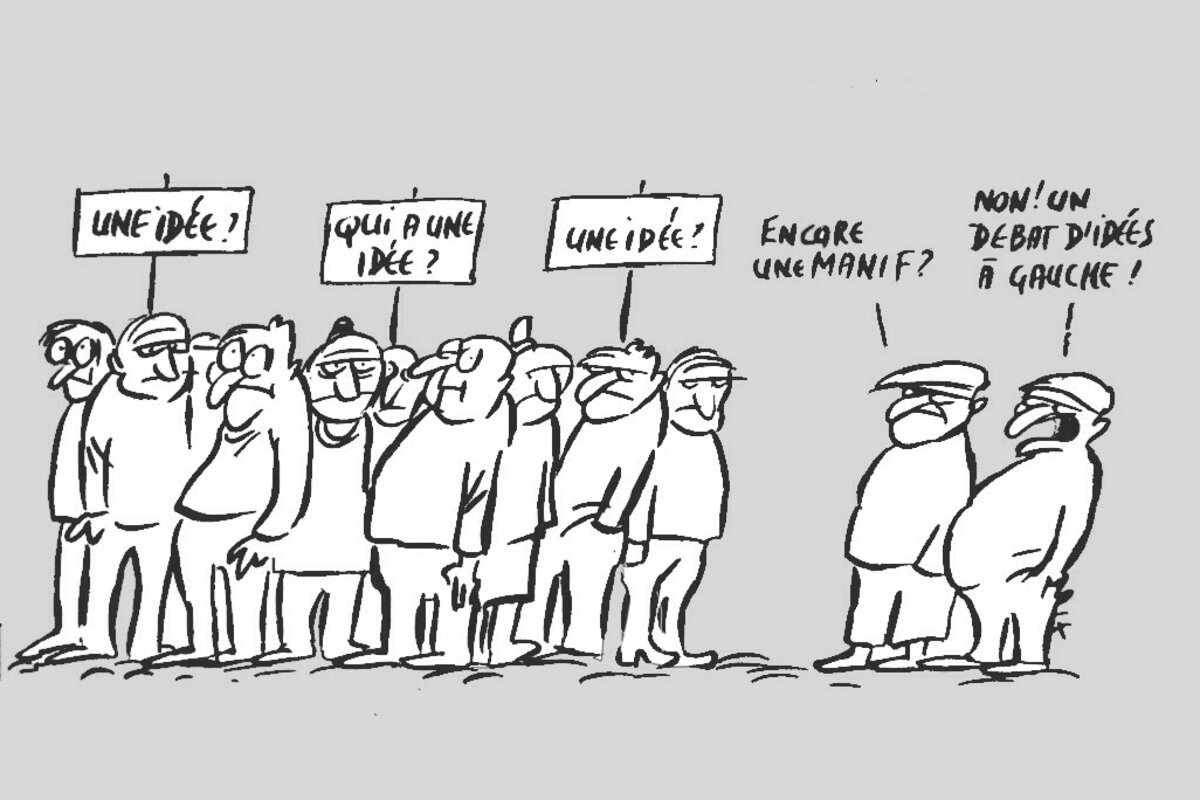 UNE IDÉE?
QUI A UNE
IDÉE?
UNE IDÉE?
ENCORE
UNE MANIF?
NON! UN
DEBAT D'IDÉES
À GAUCHE!